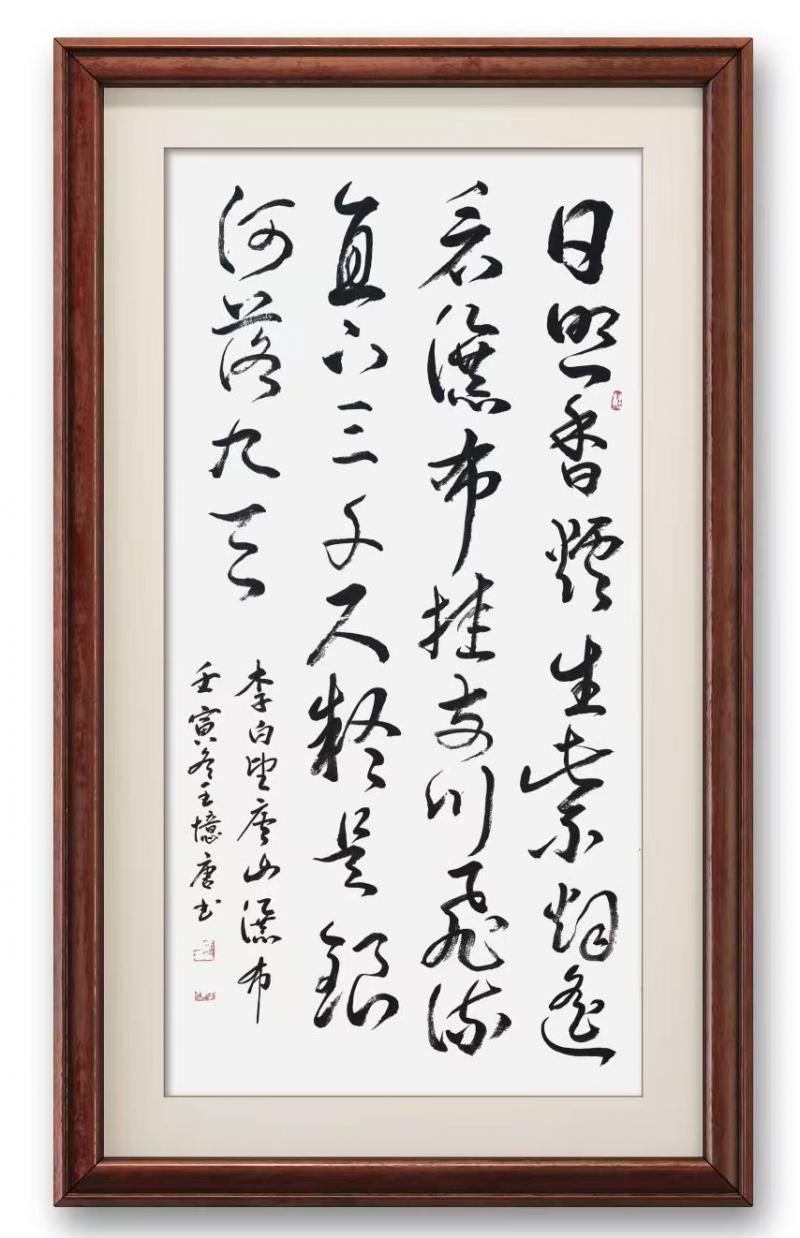 日照香爐生紫烟遥
看瀑布挂前川飛流
直下三千尺疑是銀
河落九天
李白望廬山瀑布
壬寅冬王憶唐书